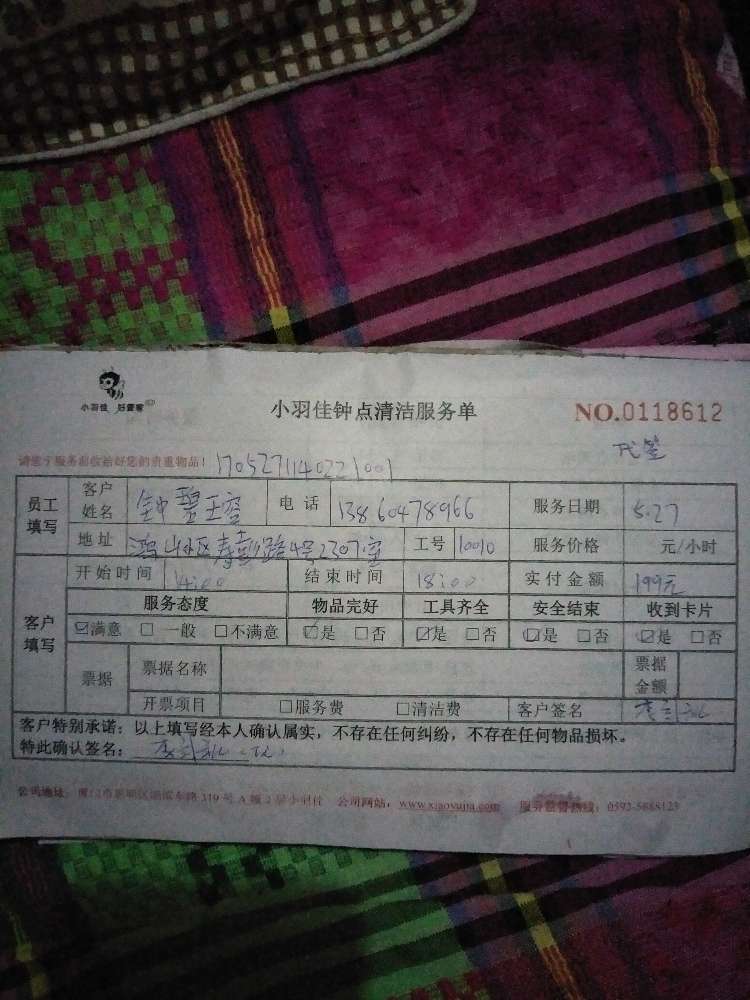 小羽佳 好管家
小羽佳钟点清洁服务单
NO.0118612
代签
请您于服务前收拾好您的贵重物品! 1705271140221001
员工填写
客户姓名
电话 13860478966
服务日期 5.27
地址 4号2307室
工号 10010
服务价格 元/小时
客户填写
开始时间 14:00
结束时间 18:00
实付金额 199元
服务态度 物品完好 工具齐全 安全结束 收到卡片
☑满意 □一般 □不满意 ☑是 □否 ☑是 □否 ☑是 □否 ☑是 □否
票据
票据名称
票据金额
开票项目 □服务费 □清洁费 客户签名
客户特别承诺:以上填写经本人确认属实,不存在任何纠纷,不存在任何物品损坏。
特此确认签名:
公司地址: 厦门市思明区湖滨东路319号A幢2层小羽佳 公司网站: www.xiaoyujia.com 服务监督热线: 0592-5888123